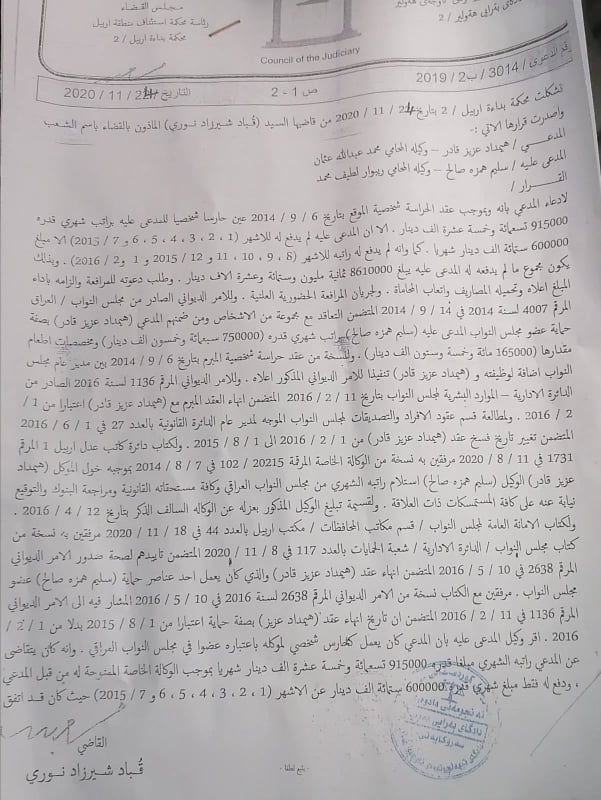 مجلس القضاء
رئاسة محكمة استئناف منطقة اربيل
محكمة بداءة اربيل / 2
Council of the Judiciary
رقم الدعوى / 3014 / ب2 / 2019
ص 1 - 2
التاريخ 24 / 11 / 2020
تشكلت محكمة بداءة اربيل / 2 بتاريخ 24 / 11 / 2020 من قاضيها السيد (قُباد شيرزاد نوري) المأذون بالقضاء باسم الشعب
واصدرت قرارها الاتي :-
المدعي / هيمداد عزيز قادر – وكيله المحامي محمد عبدالله عثمان
المدعى عليه / سليم همزه صالح – وكيله المحامي ريبوار لطيف محمد
القرار /
لادعاء المدعي بانه وبموجب عقد الحراسة شخصية الموقع بتاريخ 6 / 9 / 2014 عين حارسا شخصيا للمدعى عليه براتب شهري قدره
915000 تسعمائة وخمسة عشرة الف دينار . الا ان المدعى عليه لم يدفع له للاشهر (1 ، 2 ، 3 ، 4 ، 5 ، 6 و 7 / 2015) الا مبلغ
600000 ستمائة الف دينار شهريا . كما وانه لم يدفع له راتبه للاشهر (8 ، 9 ، 10 ، 11 و 12 / 2015 و 1 و 2 / 2016) . وبذلك
يكون مجموع ما لم يدفعه له المدعى عليه يبلغ 8610000 ثمانية مليون وستمائة وعشرة الاف دينار . وطلب دعوته للمرافعة والزامه باداء
المبلغ اعلاه وتحميله المصاريف واتعاب المحاماة . ولجريان المرافعة الحضورية العلنية . وللامر الديواني الصادر من مجلس النواب / العراق
المرقم 4007 لسنة 2014 في 14 / 9 / 2014 المتضمن التعاقد مع مجموعة من الاشخاص ومن ضمنهم المدعي (هيمداد عزيز قادر) بصفة
حماية عضو مجلس النواب المدعى عليه (سليم همزه صالح) براتب شهري قدره (750000 سبعمائة وخمسون الف دينار) ومخصصات اطعام
مقدارها (165000 مائة وخمسة وستون الف دينار) . وللنسخة من عقد حراسة شخصية المبرم بتاريخ 6 / 9 / 2014 بين مدير عام مجلس
النواب اضافة لوظيفته و (هيمداد عزيز قادر) تنفيذا للامر الديواني المذكور اعلاه . وللامر الديواني المرقم 1136 لسنة 2016 الصادر من
الدائرة الادارية – الموارد البشرية لمجلس النواب بتاريخ 11 / 2 / 2016 المتضمن انهاء العقد المبرم مع (هيمداد عزيز قادر) اعتبارا من 1 /
2 / 2016 . ولمطالعة قسم عقود الافراد والتصديقات لمجلس النواب الموجه لمدير عام الدائرة القانونية بالعدد 27 في 1 / 6 / 2016
المتضمن تغيير تاريخ فسخ عقد (هيمداد عزيز قادر) من 1 / 2 / 2016 الى 1 / 8 / 2015 . ولكتاب دائرة كاتب عدل اربيل 1 المرقم
1731 في 11 / 8 / 2020 مرفقين به نسخة من الوكالة الخاصة المرقمة 20215 / 102 في 7 / 8 / 2014 بموجبه خول الموكل (هيمداد
عزيز قادر) الوكيل (سليم همزه صالح) استلام راتبه الشهري من مجلس النواب العراقي وكافة مستحقاته القانونية ومراجعة البنوك والتوقيع
نيابة عنه على كافة المستمسكات ذات العلاقة . ولقسيمة تبليغ الوكيل المذكور بعزله عن الوكاله السالف الذكر بتاريخ 12 / 4 / 2016 .
ولكتاب الامانة العامة لمجلس النواب / قسم مكاتب المحافظات / مكتب اربيل بالعدد 44 في 18 / 11 / 2020 مرفقين به نسخة من
كتاب مجلس النواب / الدائرة الادارية / شعبة الحمايات بالعدد 117 في 8 / 11 / 2020 المتضمن تاييدهم لصحة صدور الامر الديواني
المرقم 2638 في 10 / 5 / 2016 المتضمن انهاء عقد (هيمداد عزيز قادر) والذي كان يعمل احد عناصر حماية (سليم همزه صالح) عضو
مجلس النواب . مرفقين مع الكتاب نسخة من الامر الديواني المرقم 2638 لسنة 2016 في 10 / 5 / 2016 المشار فيه الى الامر الديواني
المرقم 1136 في 11 / 2 / 2016 المتضمن ان تاريخ انهاء عقد (هيمداد عزيز قادر) بصفة حماية اعتبارا من 1 / 8 / 2015 بدلا من 1 / 2 /
2016 . اقر وكيل المدعى عليه بان المدعي كان يعمل كحارس شخصي لموكله باعتباره عضوا في مجلس النواب العراقي . وانه كان يتقاضى
عن المدعي راتبه الشهري مبلغا قدره 915000 تسعمائة وخمسة عشرة الف دينار شهريا بموجب الوكالة الخاصة الممنوحة له من قبل المدعي
، ودفع له فقط مبلغ شهري قدره 600000 ستمائة الف دينار عن الاشهر (1 ، 2 ، 3 ، 4 ، 5 ، 6 و 7 / 2015) حيث كان قد اتفق
القاضي
قُباد شيرزاد نوري
- يتبع لطفا -